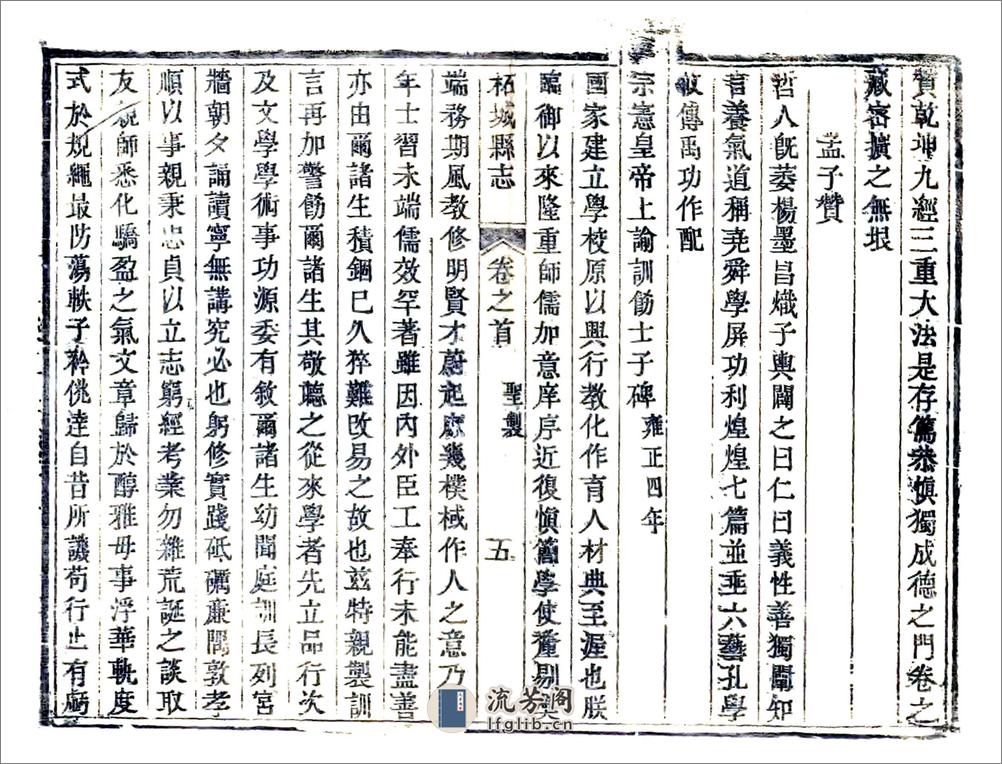 贊乾坤九經三重大法是存篤恭愼獨成德之門卷之
藏密擴之無垠
孟子贊
哲人旣萎楊墨昌熾子輿闢之曰仁曰義性善獨闡知
言養氣道稱堯舜學屏功利煌煌七篇並垂六藝孔學
攸傳禹功作配
宗憲皇帝上諭訓飭士子碑 雍正四年
國家建立學校原以興行教化作育人材典至渥也朕
臨御以來隆重師儒加意庠序近復愼簡學使釐剔
柘城縣志 卷之首 聖製 五
端務期風教修明賢才蔚起庶幾樸棫作人之意乃
年士習未端儒效罕著雖因內外臣工奉行未能盡善
亦由爾諸生積錮已久猝難改易之故也茲特親製訓
言再加警飭爾諸生其敬聽之從來學者先立品行次
及文學學術事功源委有敘爾諸生幼聞庭訓長列宮
牆朝夕誦讀寧無講究必也躬修實踐砥礪廉隅敦孝
順以事親秉忠貞以立志窮經考業勿雜荒誕之談取
友親師悉化驕盈之氣文章歸於醇雅毋事浮華軌度
式於規繩最防蕩軼子衿佻達自昔所譏苟行止有虧
流芳阁
lfglib.cn